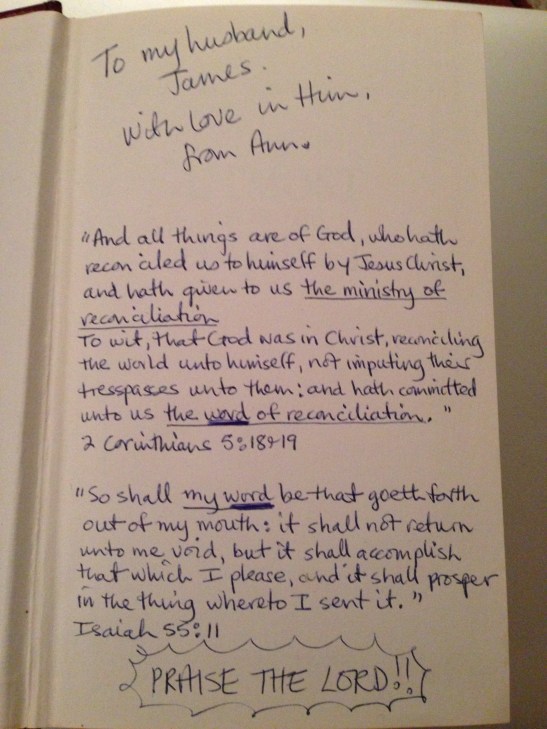 To my husband,
James.
With love in Him,
from Ann.
"And all things are of God, who hath
reconciled us to himself by Jesus Christ,
and hath given to us the ministry of
reconciliation
To wit, that God was in Christ, reconciling
the world unto himself, not imputing their
tresspasses unto them: and hath committed
unto us the word of reconciliation."
2 Corinthians 5:18&19
"So shall my word be that goeth forth
out of my mouth: it shall not return
unto me void, but it shall accomplish
that which I please, and it shall prosper
in the thing whereto I sent it."
Isaiah 55:11
PRAISE THE LORD!!